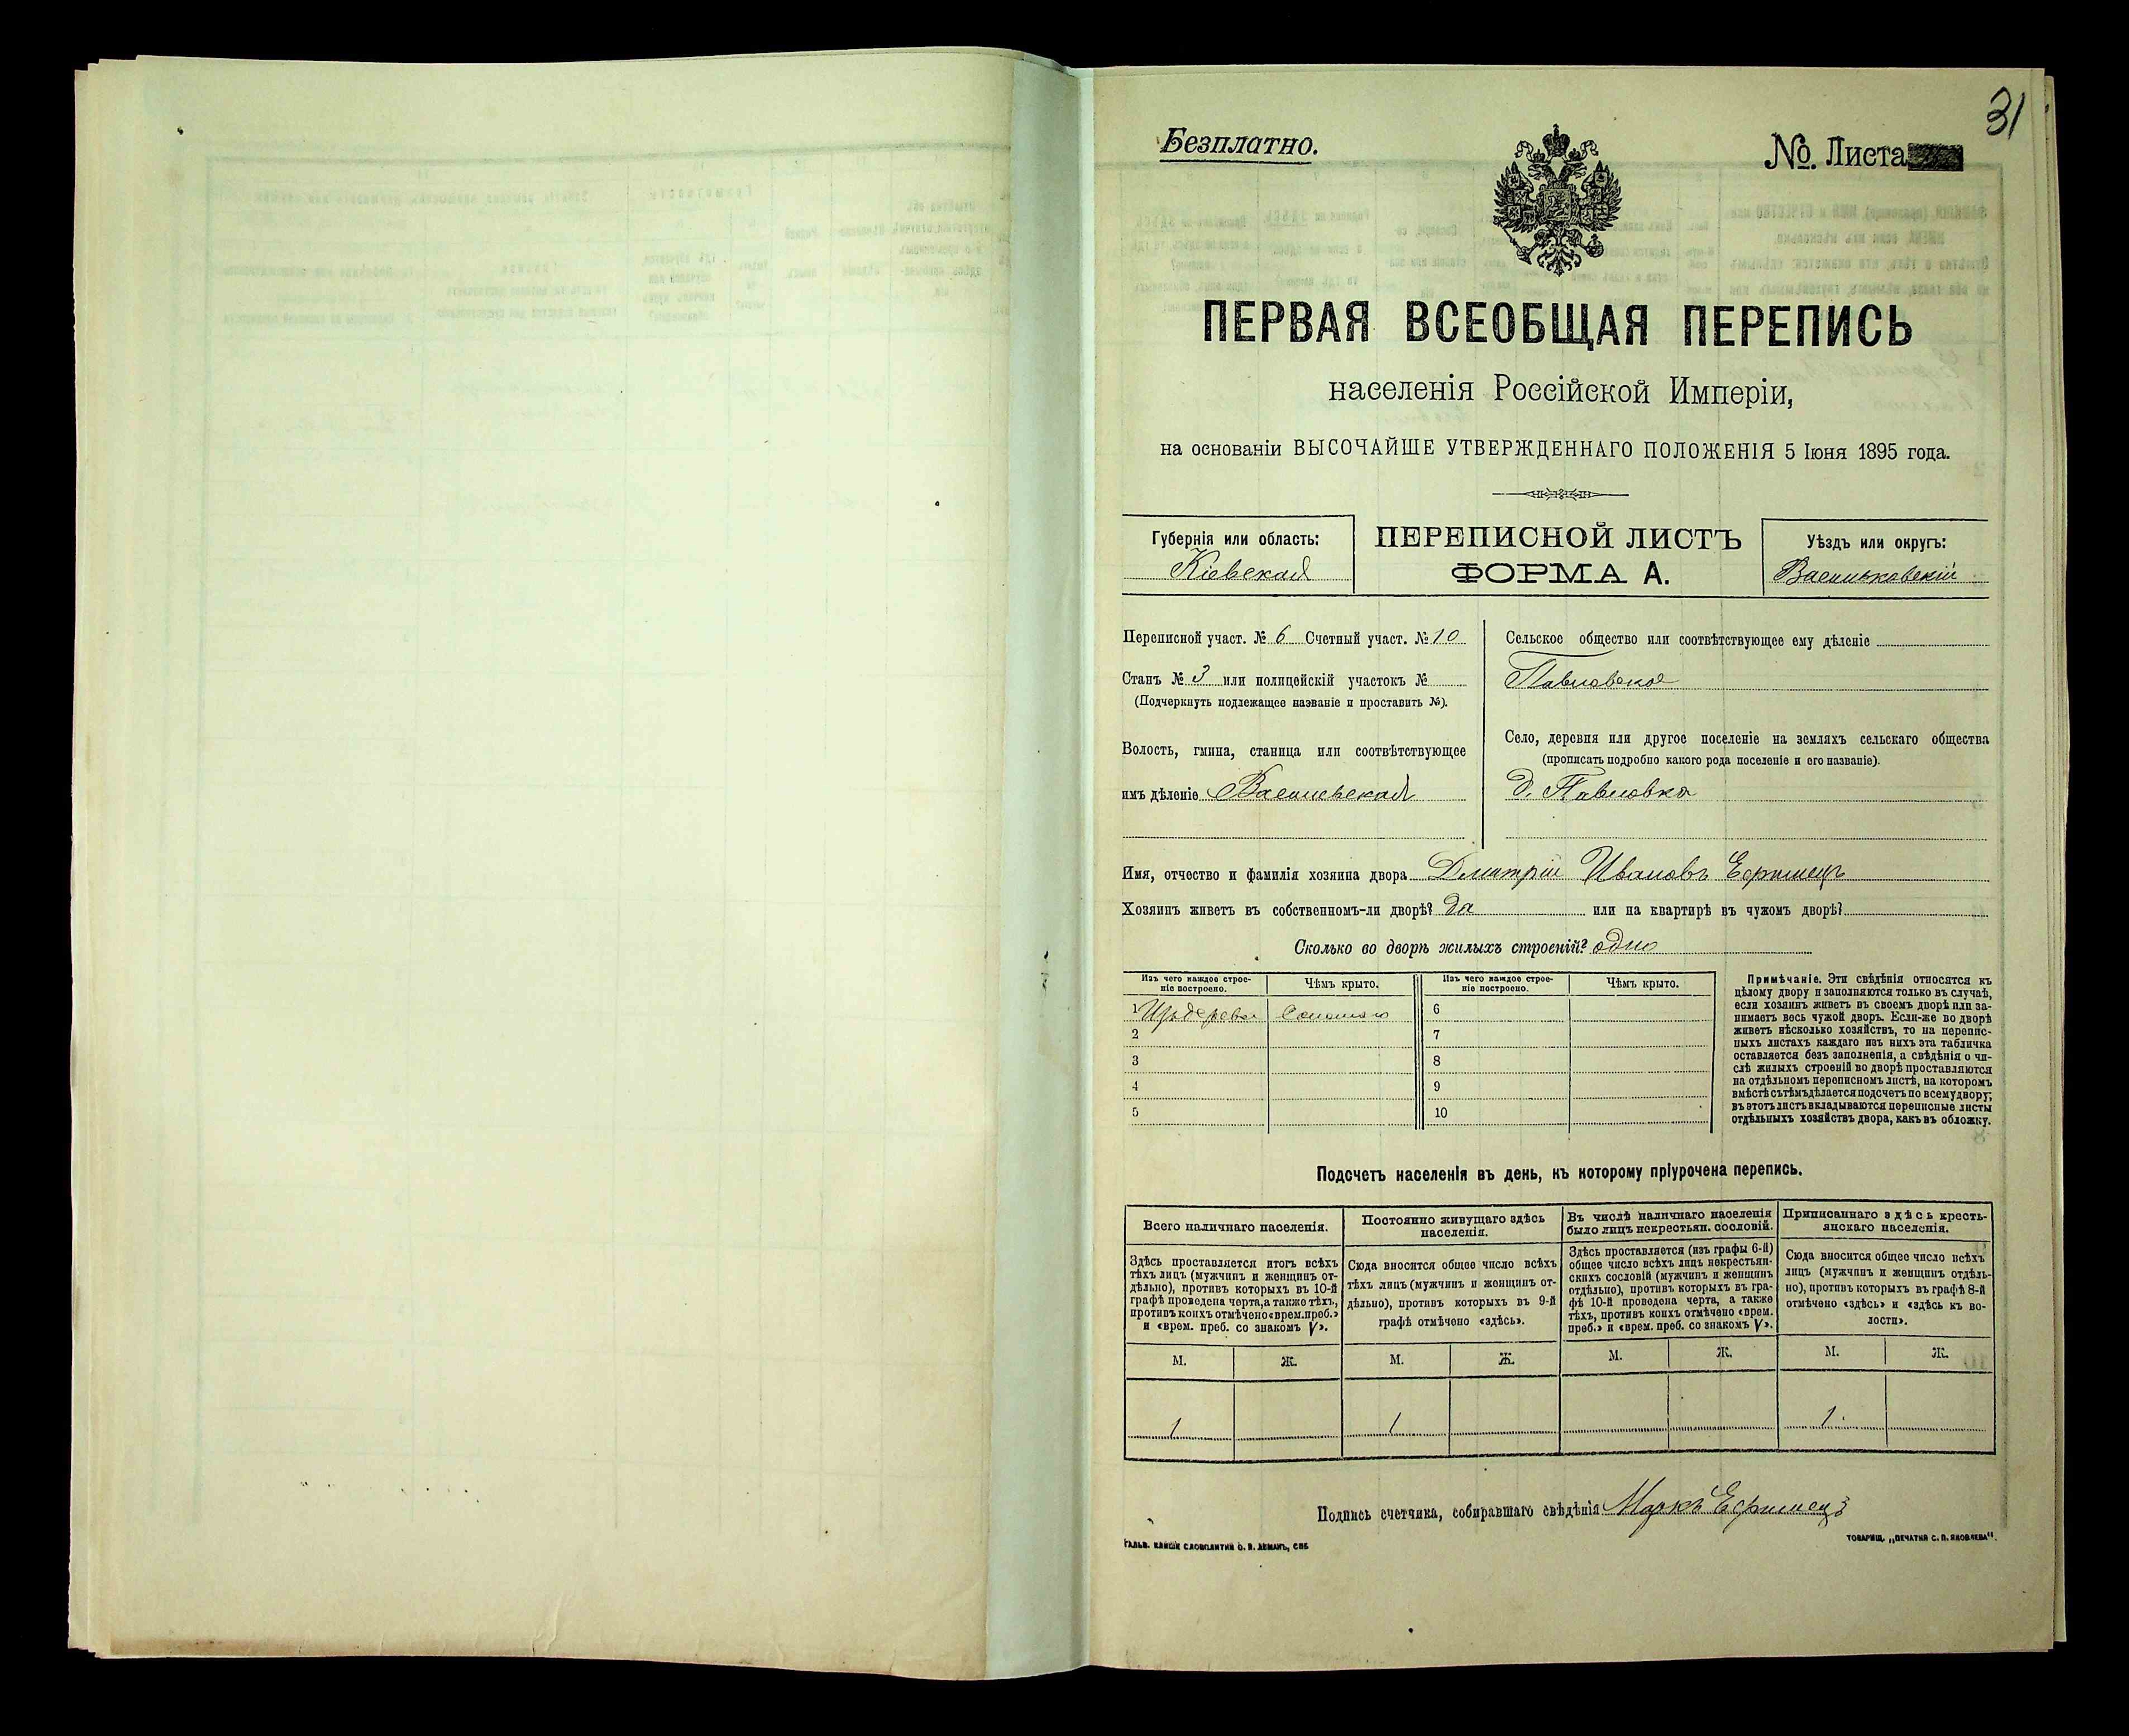 31
Безплатно.
№. Листа
ПЕРВАЯ ВСЕОБЩАЯ ПЕРЕПИСЬ
населенія Россійской Имперіи,
на основаніи ВЫСОЧАЙШЕ УТВЕРЖДЕННАГО ПОЛОЖЕНІЯ 5 Іюня 1895 года.
Губернія или область:
Кіевская
ПЕРЕПИСНОЙ ЛИСТЪ
ФОРМА А.
Уѣздъ или округъ:
Васильковскій
Переписной участ. № 6 Счетный участ. № 10
Станъ № 3 или полицейскій участокъ №
(Подчеркнуть подлежащее названіе и проставить №).
Волость, гмина, станица или соотвѣтствующее
имъ дѣленіе
Сельское общество или соотвѣтствующее ему дѣленіе
Павловское
Село, деревня или другое поселеніе на земляхъ сельскаго общества
(прописать подробно какого рода поселеніе и его названіе).
д. Павловка
Имя, отчество и фамилія хозяина двора Дмитрій Ивановъ
Хозяинъ живетъ въ собственномъ-ли дворѣ? да или на квартирѣ въ чужомъ дворѣ?
Сколько во дворѣ жилыхъ строеній? одно
Изъ чего каждое строе-
ніе построено.
Чѣмъ крыто.
1 Изъ дерева Соломою
2
3
4
5
Изъ чего каждое строе-
ніе построено.
Чѣмъ крыто.
6
7
8
9
10
Примѣчаніе. Эти свѣдѣнія относятся къ
цѣлому двору и заполняются только въ случаѣ,
если хозяинъ живетъ въ своемъ дворѣ или за-
нимаетъ весь чужой дворъ. Если-же во дворѣ
живетъ нѣсколько хозяйствъ, то на перепис-
ныхъ листахъ каждаго изъ нихъ эта табличка
оставляется безъ заполненія, а свѣдѣнія о чи-
слѣ жилыхъ строеній во дворѣ проставляются
на отдѣльномъ переписномъ листѣ, на которомъ
вмѣстѣ съ тѣмъ дѣлается подсчетъ по всему двору;
въ этотъ листъ вкладываются переписные листы
отдѣльныхъ хозяйствъ двора, какъ въ обложку.
Подсчетъ населенія въ день, къ которому пріурочена перепись.
Всего наличнаго населенія.
Здѣсь проставляется итогъ всѣхъ
тѣхъ лицъ (мужчинъ и женщинъ от-
дѣльно), противъ которыхъ въ 10-й
графѣ проведена черта, а также тѣхъ,
противъ коихъ отмѣчено «врем. преб.»
и «врем. преб. со знакомъ V».
М. Ж.
1
Постоянно живущаго здѣсь
населенія.
Сюда вносится общее число всѣхъ
тѣхъ лицъ (мужчинъ и женщинъ от-
дѣльно), противъ которыхъ въ 9-й
графѣ отмѣчено «здѣсь».
М. Ж.
1
Въ числѣ наличнаго населенія
было лицъ некрестьян. сословій.
Здѣсь проставляется (изъ графы 6-й)
общее число всѣхъ лицъ некрестьян-
скихъ сословій (мужчинъ и женщинъ
отдѣльно), противъ которыхъ въ гра-
фѣ 10-й проведена черта, а также
тѣхъ, противъ коихъ отмѣчено «врем.
преб.» и «врем. преб. со знакомъ V».
М. Ж.
Приписаннаго здѣсь кресть-
янскаго населенія.
Сюда вносится общее число всѣхъ
лицъ (мужчинъ и женщинъ отдѣль-
но), противъ которыхъ въ графѣ 8-й
отмѣчено «здѣсь» и «здѣсь къ во-
лости».
М. Ж.
1.
Подпись счетчика, собиравшаго свѣдѣнія Маркъ
ТОВАРИЩ. „ПЕЧАТНЯ С. П. ЯКОВЛЕВА“.